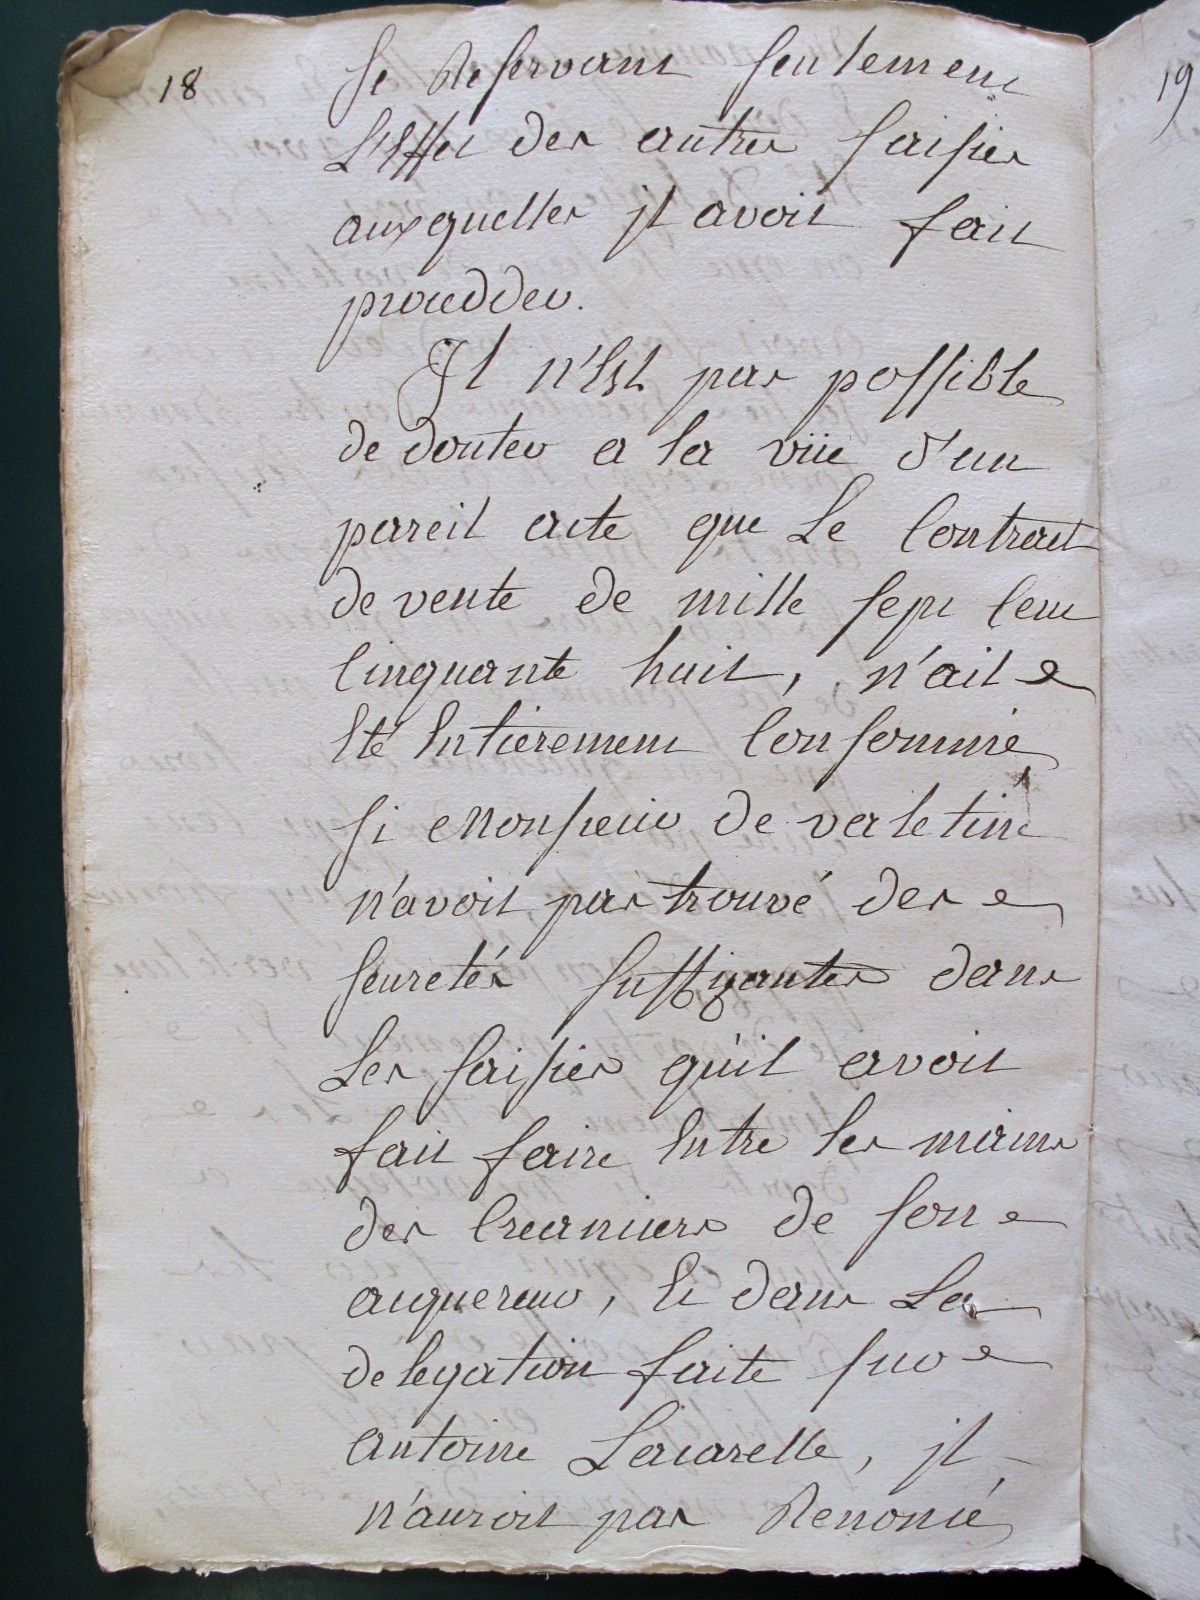 18
se Reservant seulement
L'Effet des autres saisies
auxquelles jl avoit fait
procedder.
Il n'Est pas possible
de douter a la vüe d'un
pareil acte que Le Contract
de vente de mille sept Cent
Cinquante huit, n'ait
Eté Entierement Consommé,
si Monsieur de verletine
n'avoit pas trouvé des
seuretés suffizantes dans
Les saisies qu'il avoit
fait faire Entre les mains
des Creanciers de son
acquereur, Et dans La
delegation faite sur
antoine Lacarelle, jl
n'auroit pas Renoncé
19